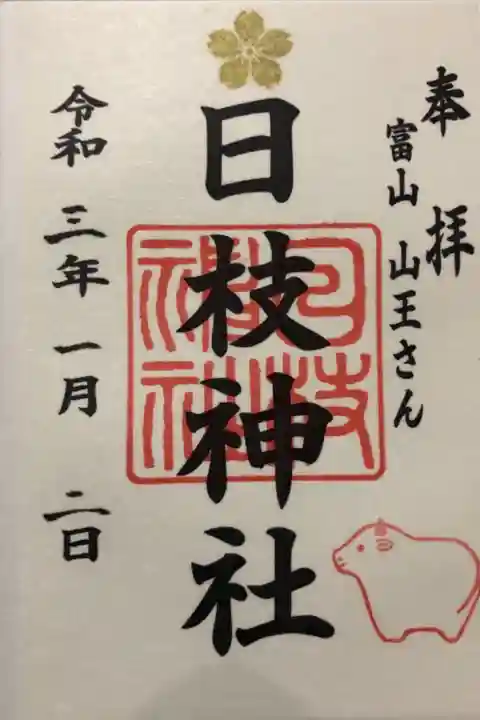 奉拝
富山 山王さん
日枝神社
令和三年一月二日